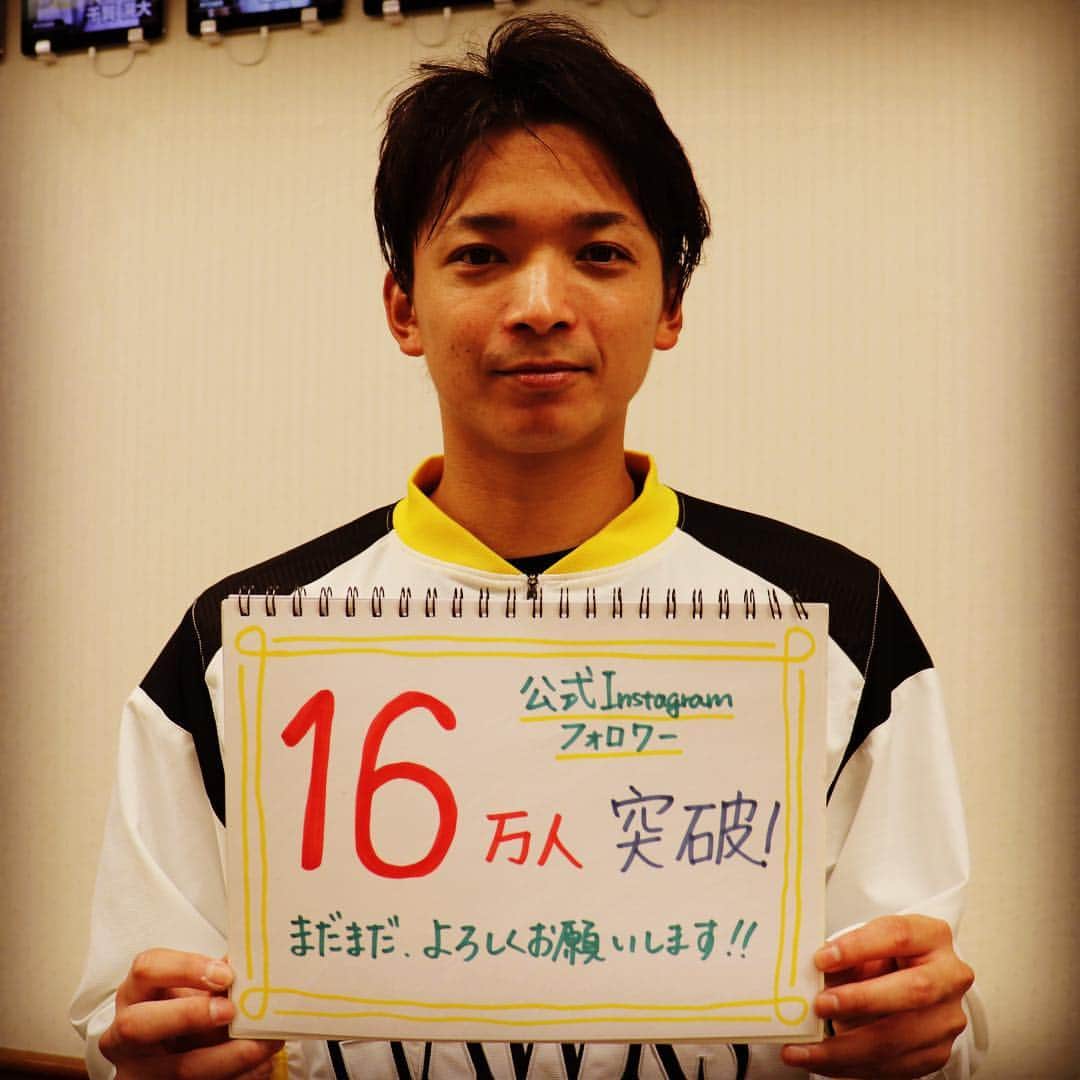 公式Instagram
フォロワー
16万人 突破!
まだまだ、よろしくお願いします!!